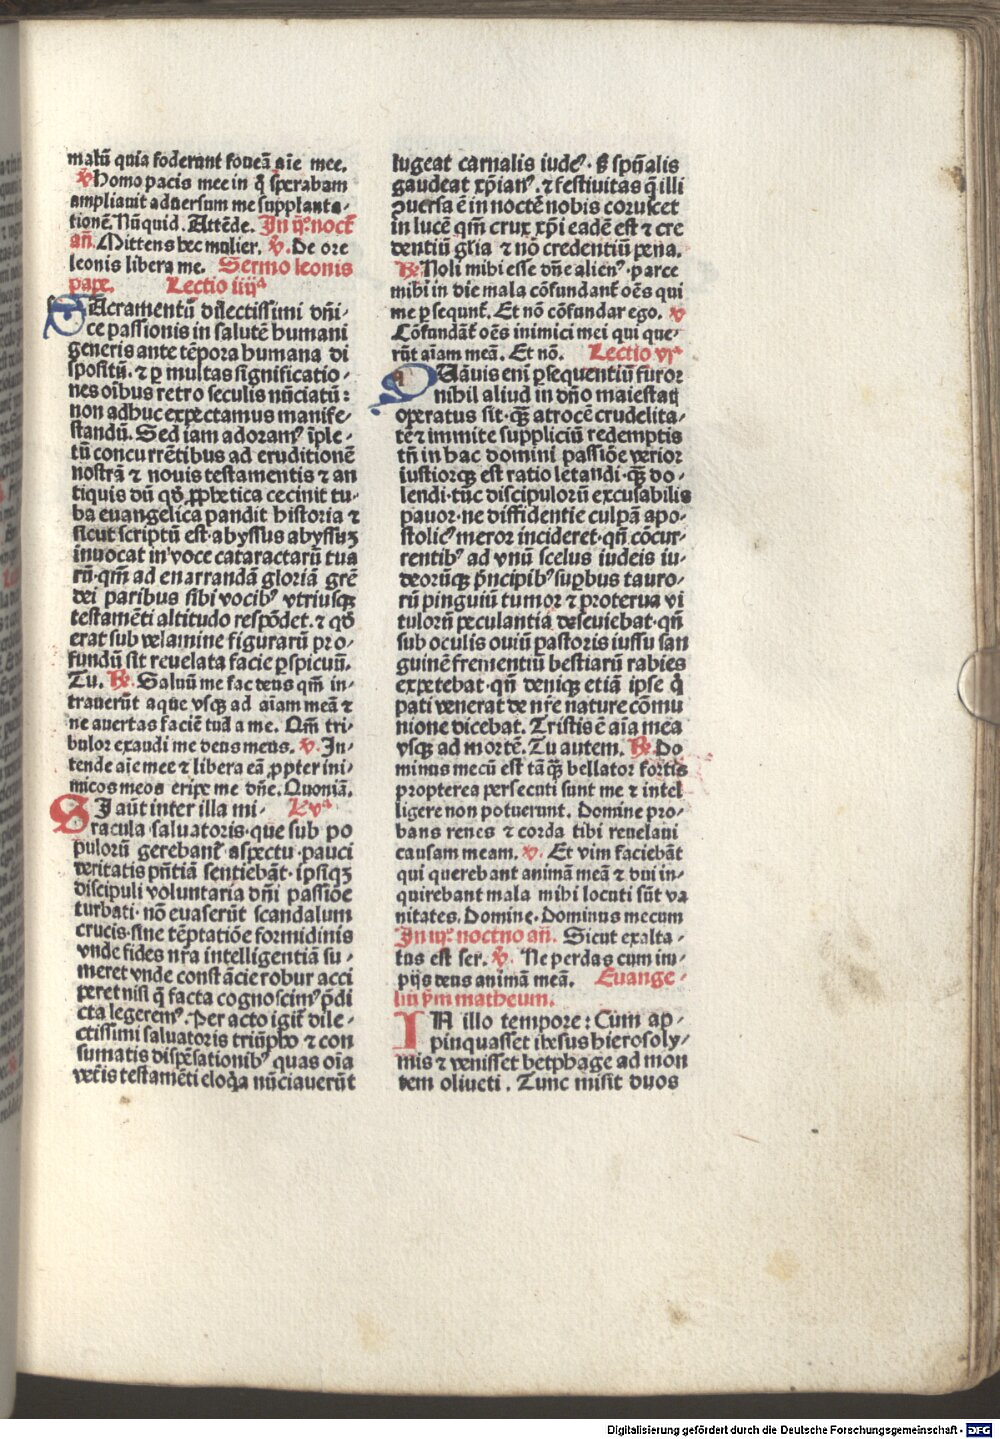 malū quia foderunt foueā aīe mee.
℣ Homo pacis mee in q̄ sperabam
ampliauit aduersum me supplanta-
tionē. Nūquid. Attēde. In ij⁰. nocť
añ. Mittens hec mulier. ℣. De ore
leonis libera me. Sermo leonis
pape. Lectio iiijᵃ
SAcramentū dilectissimi dñi-
ce passionis in salutē humani
generis ante tēpora humana di
spositū. ⁊ ꝑ multas significatio-
nes oībus retro seculis nūciatū:
non adhuc expectamus manife-
standū. Sed iam adoramꝰ īple-
tū concurrētibus ad eruditionē
nostrā ⁊ nouis testamentis ⁊ an
tiquis dū qð ꝓphetica cecinit tu-
ba euangelica pandit historia ⁊
sicut scriptū est·abyssus abyssuꝫ
inuocat in voce cataractarū tua
rū·qm̄ ad enarrandā gloriā grē
dei paribus sibi vocibꝰ vtriusqꝫ
testamēti altitudo respōdet. ⁊ qð
erat sub velamine figurarū pro-
fundū sit reuelata facie ꝑspicuū.
Tu. ℟. Saluū me fac deus qm̄ in-
trauerūt aque vsqꝫ ad aīam meā ⁊
ne auertas faciē tuā a me. Qm̄ tri-
bulor exaudi me deus meus. ℣. In-
tende aīe mee ⁊ libera eā ꝓpter ini-
micos meos eripe me dñe. Quoniā.
SI aūt inter illa mi- L. vᵃ
racula saluatoris·que sub po
pulorū gerebant̄ aspectu·pauci
veritatis pñtiā sentiebāt·ipsiqꝫ
discipuli voluntaria dñi passiōe
turbati·nō euaserūt scandalum
crucis·sine tēptatiōe formidinis
vnde fides nr̄a intelligentiā su-
meret vnde constācie robur acci
peret nisi q̄ facta cognoscimꝰ p̄di
cta legeremꝰ. Per acto igiť dile-
ctissimi saluatoris triūpho ⁊ con
sumatis dispēsationibꝰ quas oīa
vetīs testamēti eloq̄a nūciauerūt
lugeat carnalis iudeꝰ. ß spūalis
gaudeat xp̄ianꝰ. ⁊ festiuitas q̄ illi
ꝯuersa ē in noctē nobis coruscet
in lucē qm̄ crux xp̄i eadē est ⁊ cre
dentiū glīa ⁊ nō credentiū pena.
℟. Noli mihi esse dñe alienꝰ·parce
mihi in die mala cōfundant̄ oēs qui
me ꝑsequnt̄. Et nō cōfundar ego. ℣
Cōfundāt̄ oēs inimici mei qui que-
rūt aīam meā. Et nō. Lectio vjᵃ
QUāuis eni ꝑsequentiū furor
nihil aliud in dño maiestatꝭ
operatus sit·qꝫ̄ atrocē crudelita-
tē ⁊ immite suppliciū redemptis
tñ in hac domini passiōe verior
iustiorqꝫ est ratio letandi·qꝫ̄ do-
lendi·tūc discipulorū excusabilis
pauor·ne diffidentie culpā apo-
stolicꝰ meror incideret·qñ cōcur-
rentibꝰ ad vnū scelus iudeis iu-
deorūqꝫ p̄ncipibꝰ suꝑbus tauro-
rū pinguiū tumor ⁊ proterua vi
tulorū peculantia deseuiebat·qñ
sub oculis ouiū pastoris iussu san
guinē frementiū bestiarū rabies
expetebat·qñ deniqꝫ etiā ipse q̄
pati venerat de nr̄e nature cōmu
nione dicebat. Tristis ē aīa mea
vsqꝫ ad mortē. Tu autem. ℟. Do
minus mecū est tāqꝫ̄ bellator fortis
propterea persecuti sunt me ⁊ intel
ligere non potuerunt. Domine pro-
bans renes ⁊ corda tibi reuelaui
causam meam. ℣. Et vim faciebāt
qui querebant animā meā ⁊ qui in-
quirebant mala mihi locuti sūt va
nitates. Domine. Dominus mecum
In iij⁰. noctno añ. Sicut exalta-
tus est ser. ℣. Ne perdas cum im-
pijs deus animā meā. Euange-
liū ẜm matheum.
IN illo tempore: Cum ap-
pinquasset ihesus hierosoly-
mis ⁊ venisset bethphage ad mon
tem oliueti. Tunc misit duos
Digitalisierung gefördert durch die Deutsche Forschungsgemeinschaft - DFG